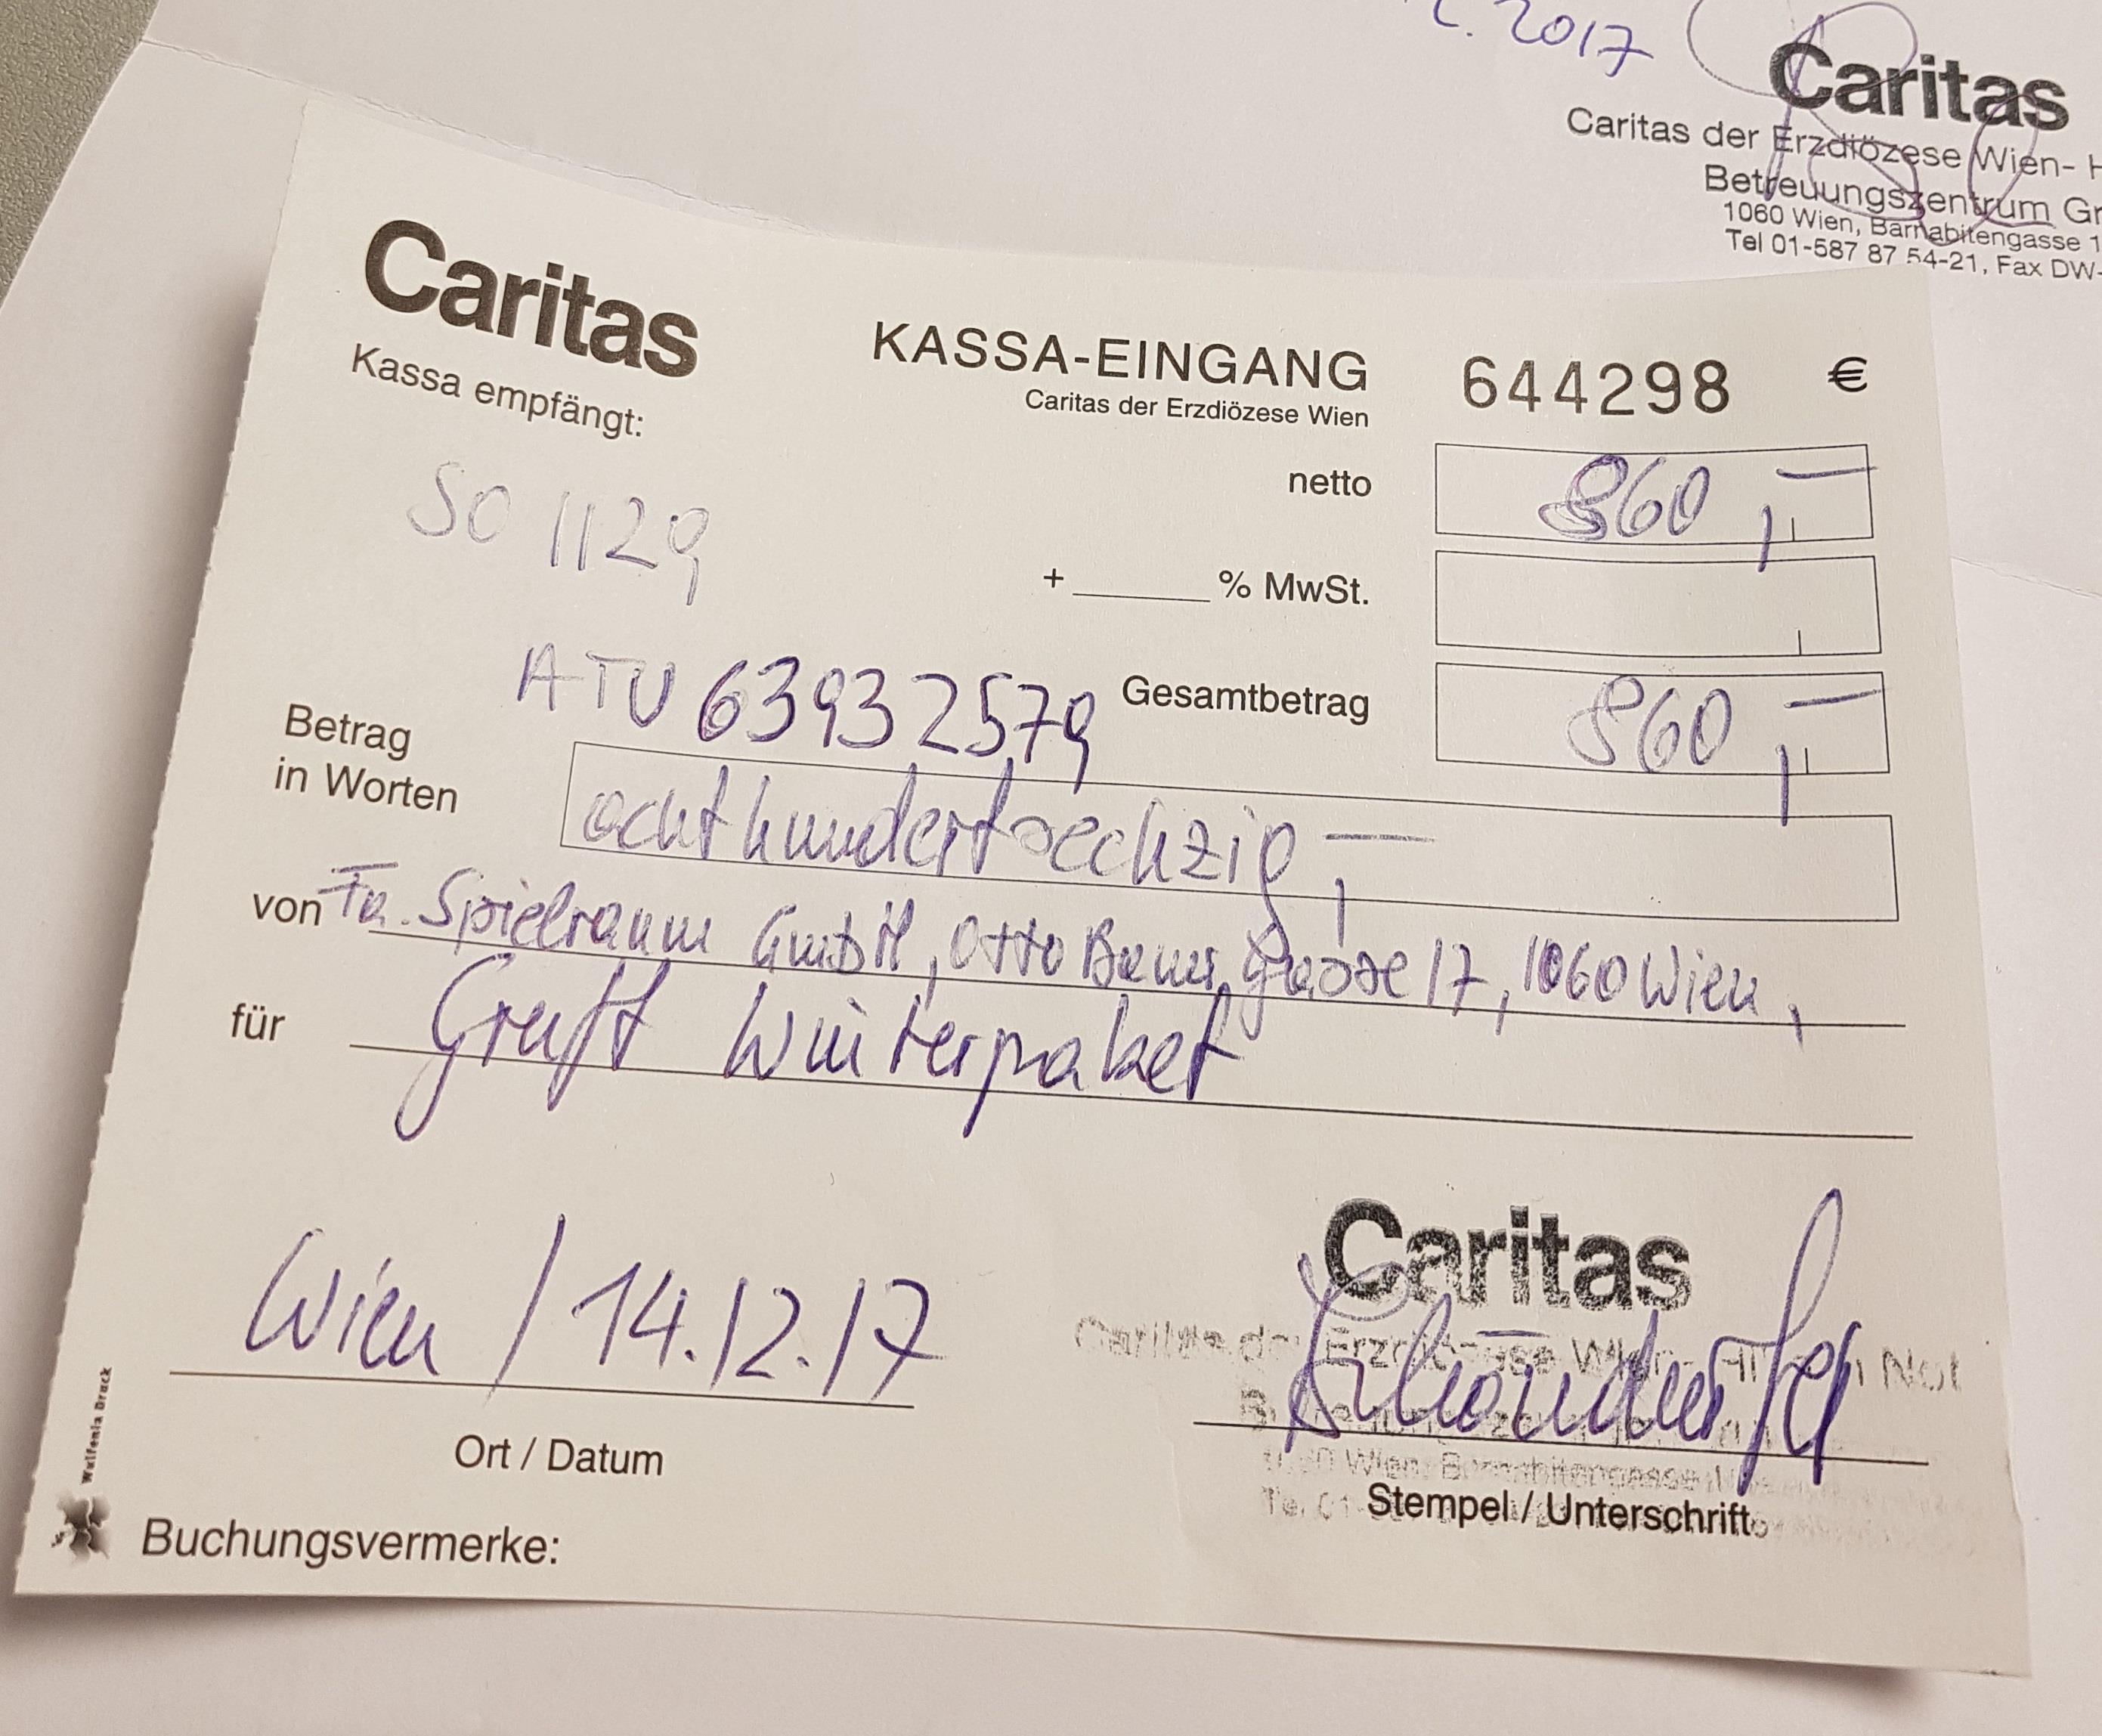 2017
Caritas
Caritas der Erzdiözese Wien- H
Betreuungszentrum Gr
1060 Wien, Barnabitengasse 1
Tel 01-587 87 54-21, Fax DW-
Caritas
Kassa empfängt:
KASSA-EINGANG
Caritas der Erzdiözese Wien
644298 €
SO 1129
netto 860,–
+ ______ % MwSt.
ATU 63932579
Gesamtbetrag 860,–
Betrag
in Worten
achthundertsechzig,–
von Fa. Spielraum GmbH, Otto Bauer gasse 17, 1060 Wien,
für Gruft Winterpaket
Wien / 14.12.17
Ort / Datum
Caritas
Erzdiözese Wien
Wien, Barnabitengasse
Stempel / Unterschrift
Buchungsvermerke:
Wulfenia Druck